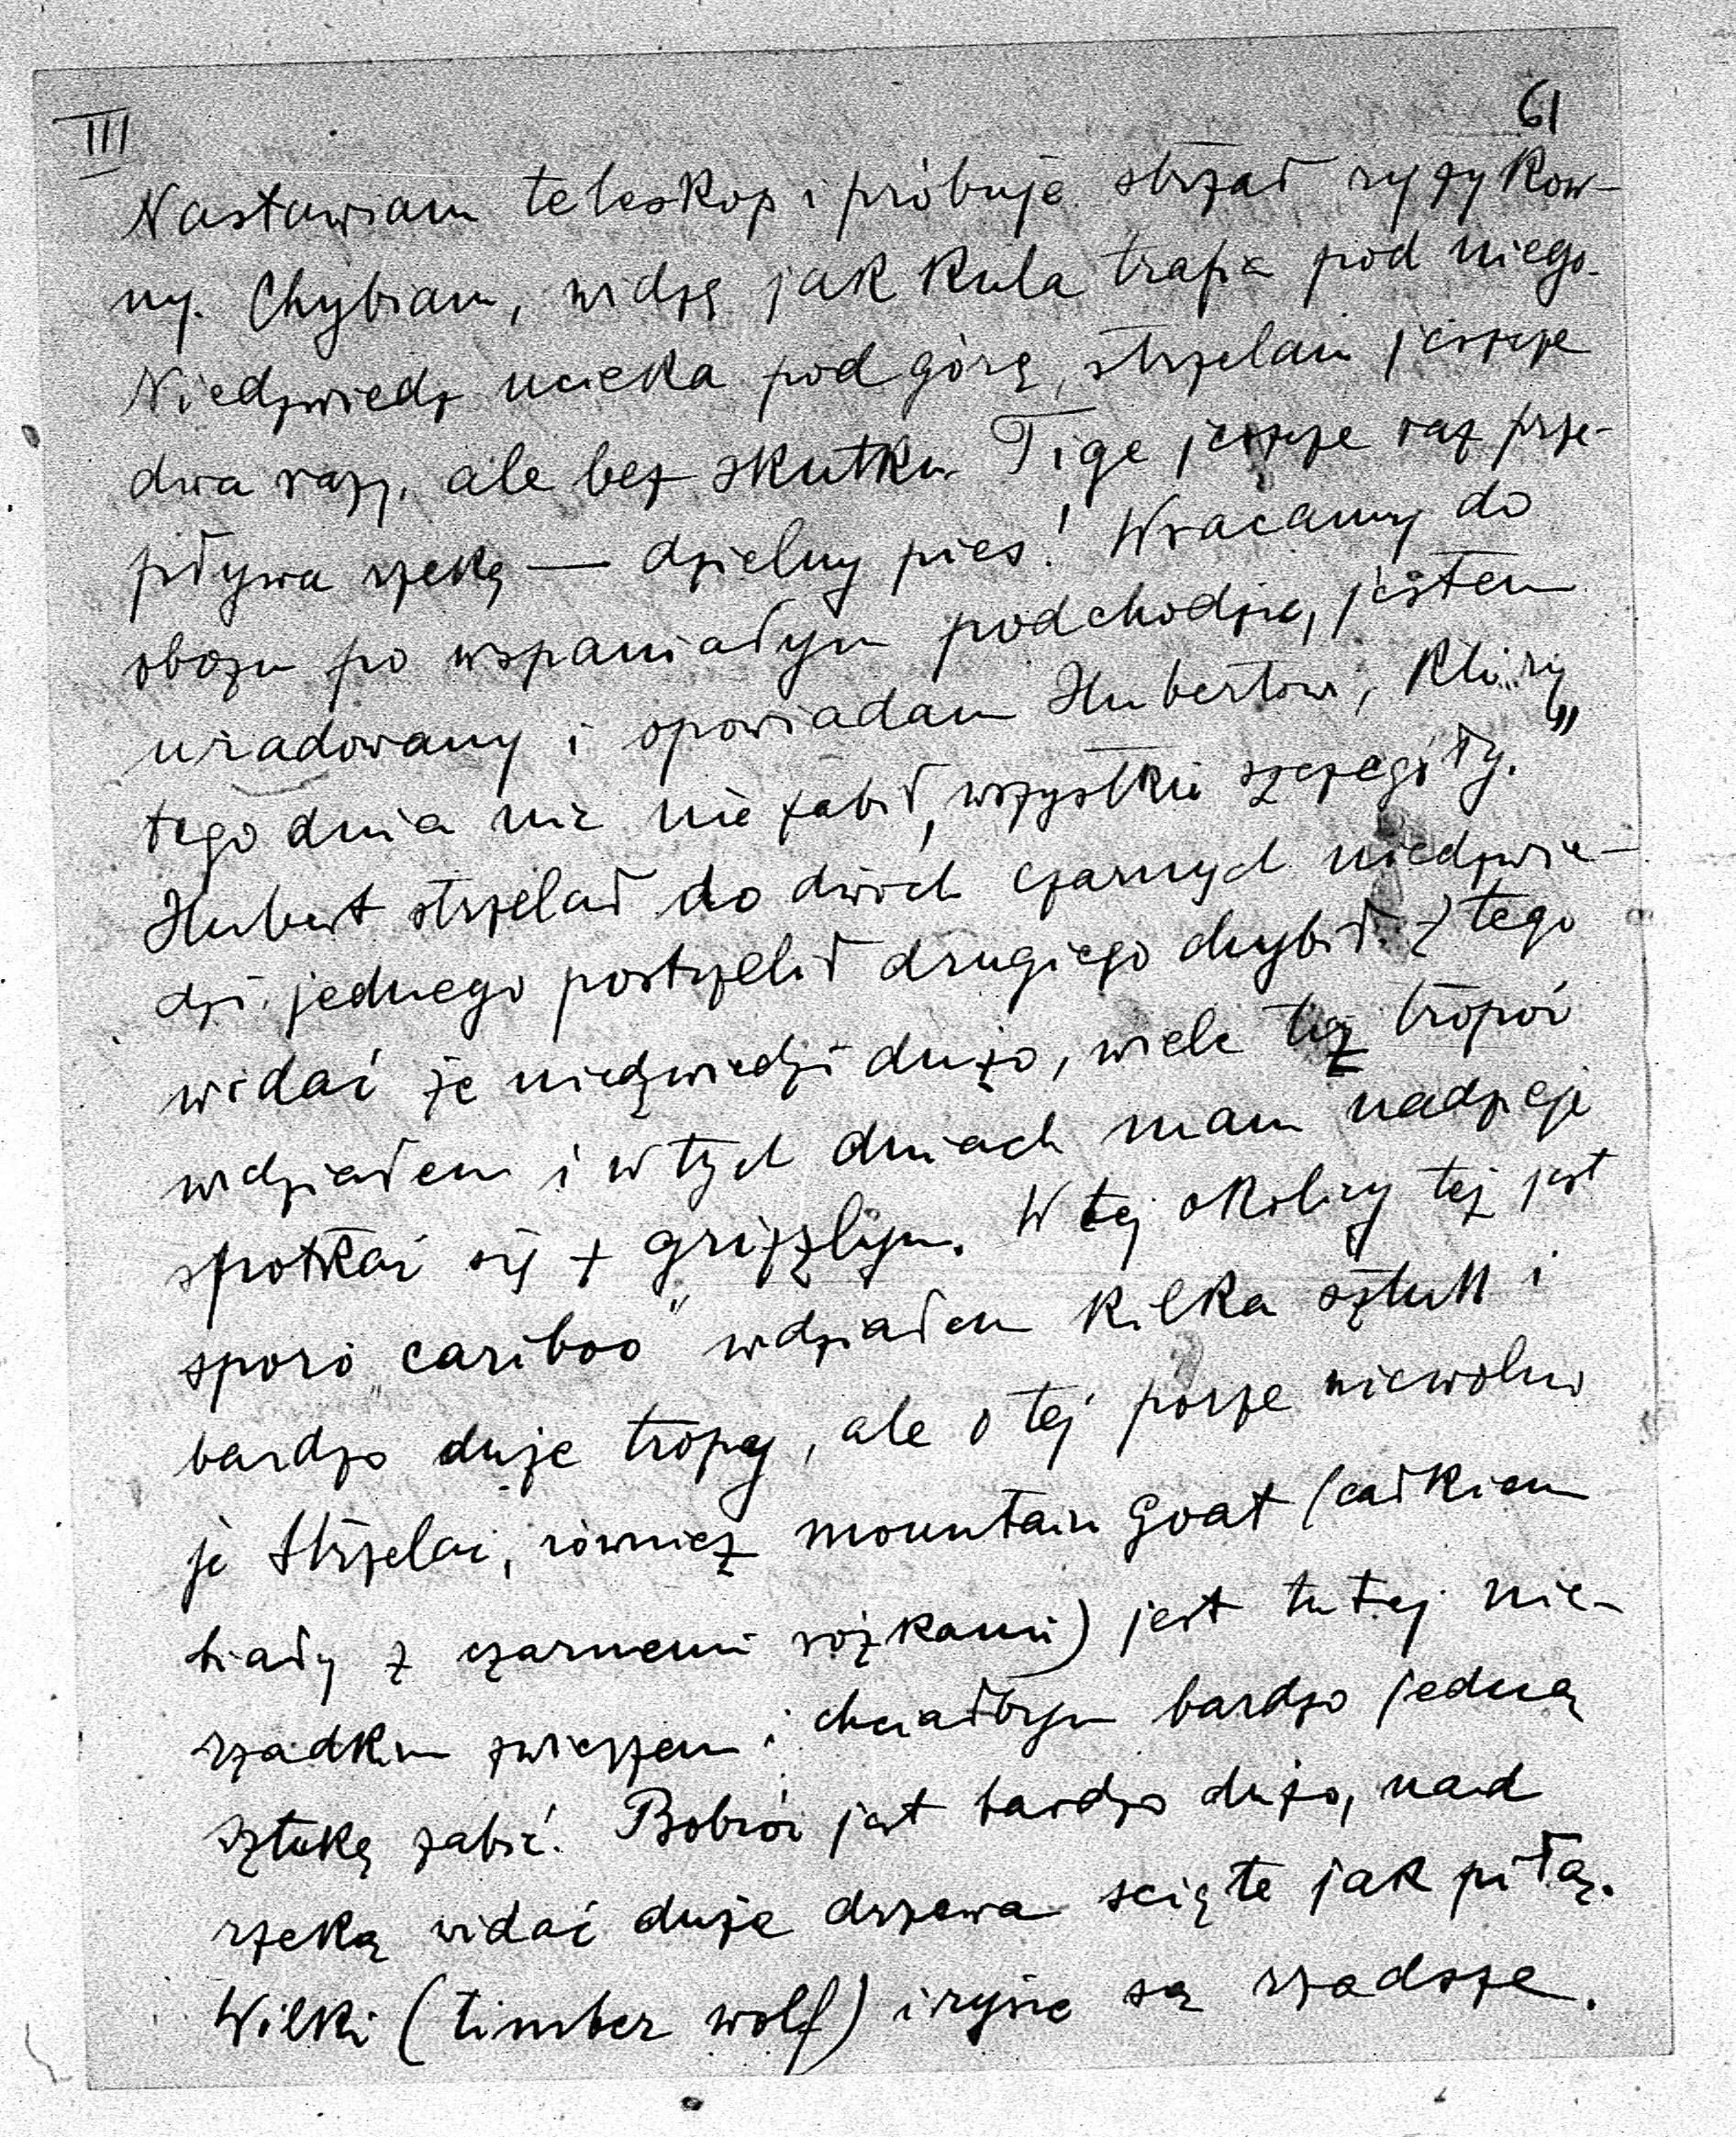 III
61
Nastawiam teleskop i próbuję strzał ryzykow-
ny. Chybiam, widzę jak kula trafia pod niego.
Niedzwiedz ucieka pod górę, strzelam jeszcze
dwa razy, ale bez skutku. Tige jeszcze raz prze-
pływa rzekę — dzielny pies! Wracamy do
obozu po wspaniałym podchodzie, jestem
uradowany i opowiadam Hubertowi, który
tego dnia nic nie zabił, wszystkie „szczegóły."
Hubert strzelał do dwóch czarnych niedzwie-
dzi, jednego postrzelił drugiego chybił. Z tego
widać że niedźwiedzi dużo, wiele też tropów
widziałem i w tych dniach mam nadzieję
spotkać się z grizzlym. W tej okolicy też jest
sporo „cariboo" widziałem kilka sztuk i
bardzo duże tropy, ale o tej porze niewolno
je strzelać, również mountain goat (całkiem
biały z czarnemi różkami) jest tutaj nie-
rzadkim zwierzem i chciałbym bardzo jedną
sztukę zabić. Bobrów jest bardzo dużo, nad
rzeką widać duże drzewa ścięte jak piłą.
Wilki (timber wolf) i rysie są rzadsze.